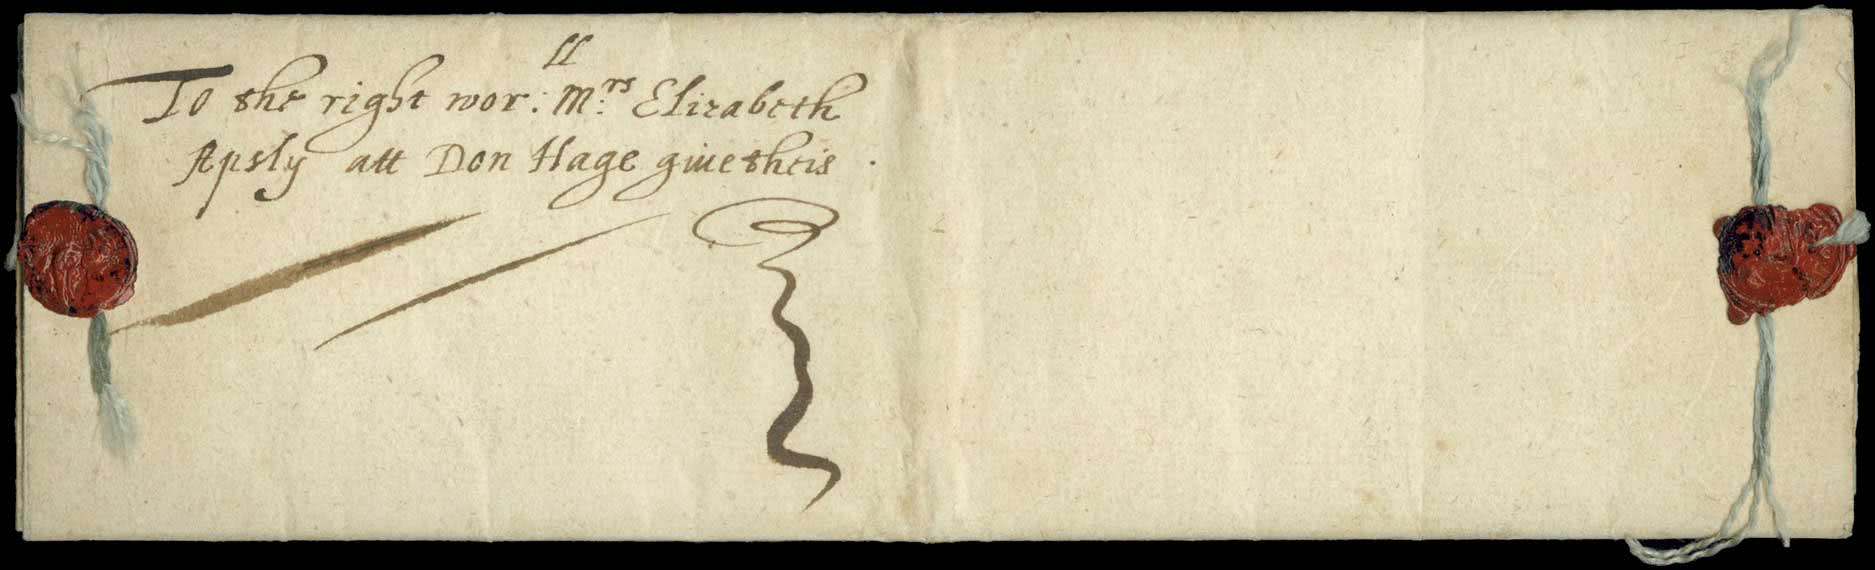 To the right wor:ll Mrs: Elizabeth
Apsly att Don Hage giue theis.